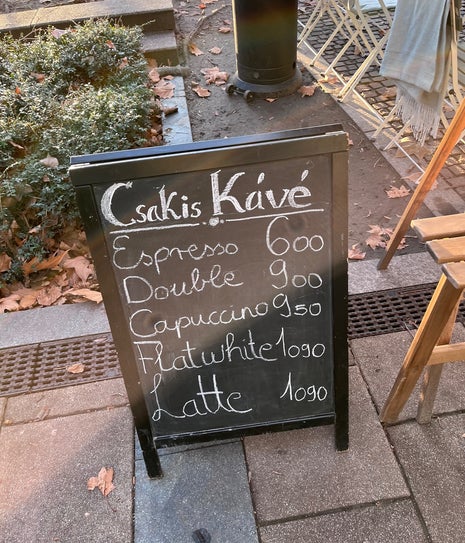 Csakis Kávé
Espresso 600
Double 900
Capuccino 950
Flatwhite 1090
Latte 1090